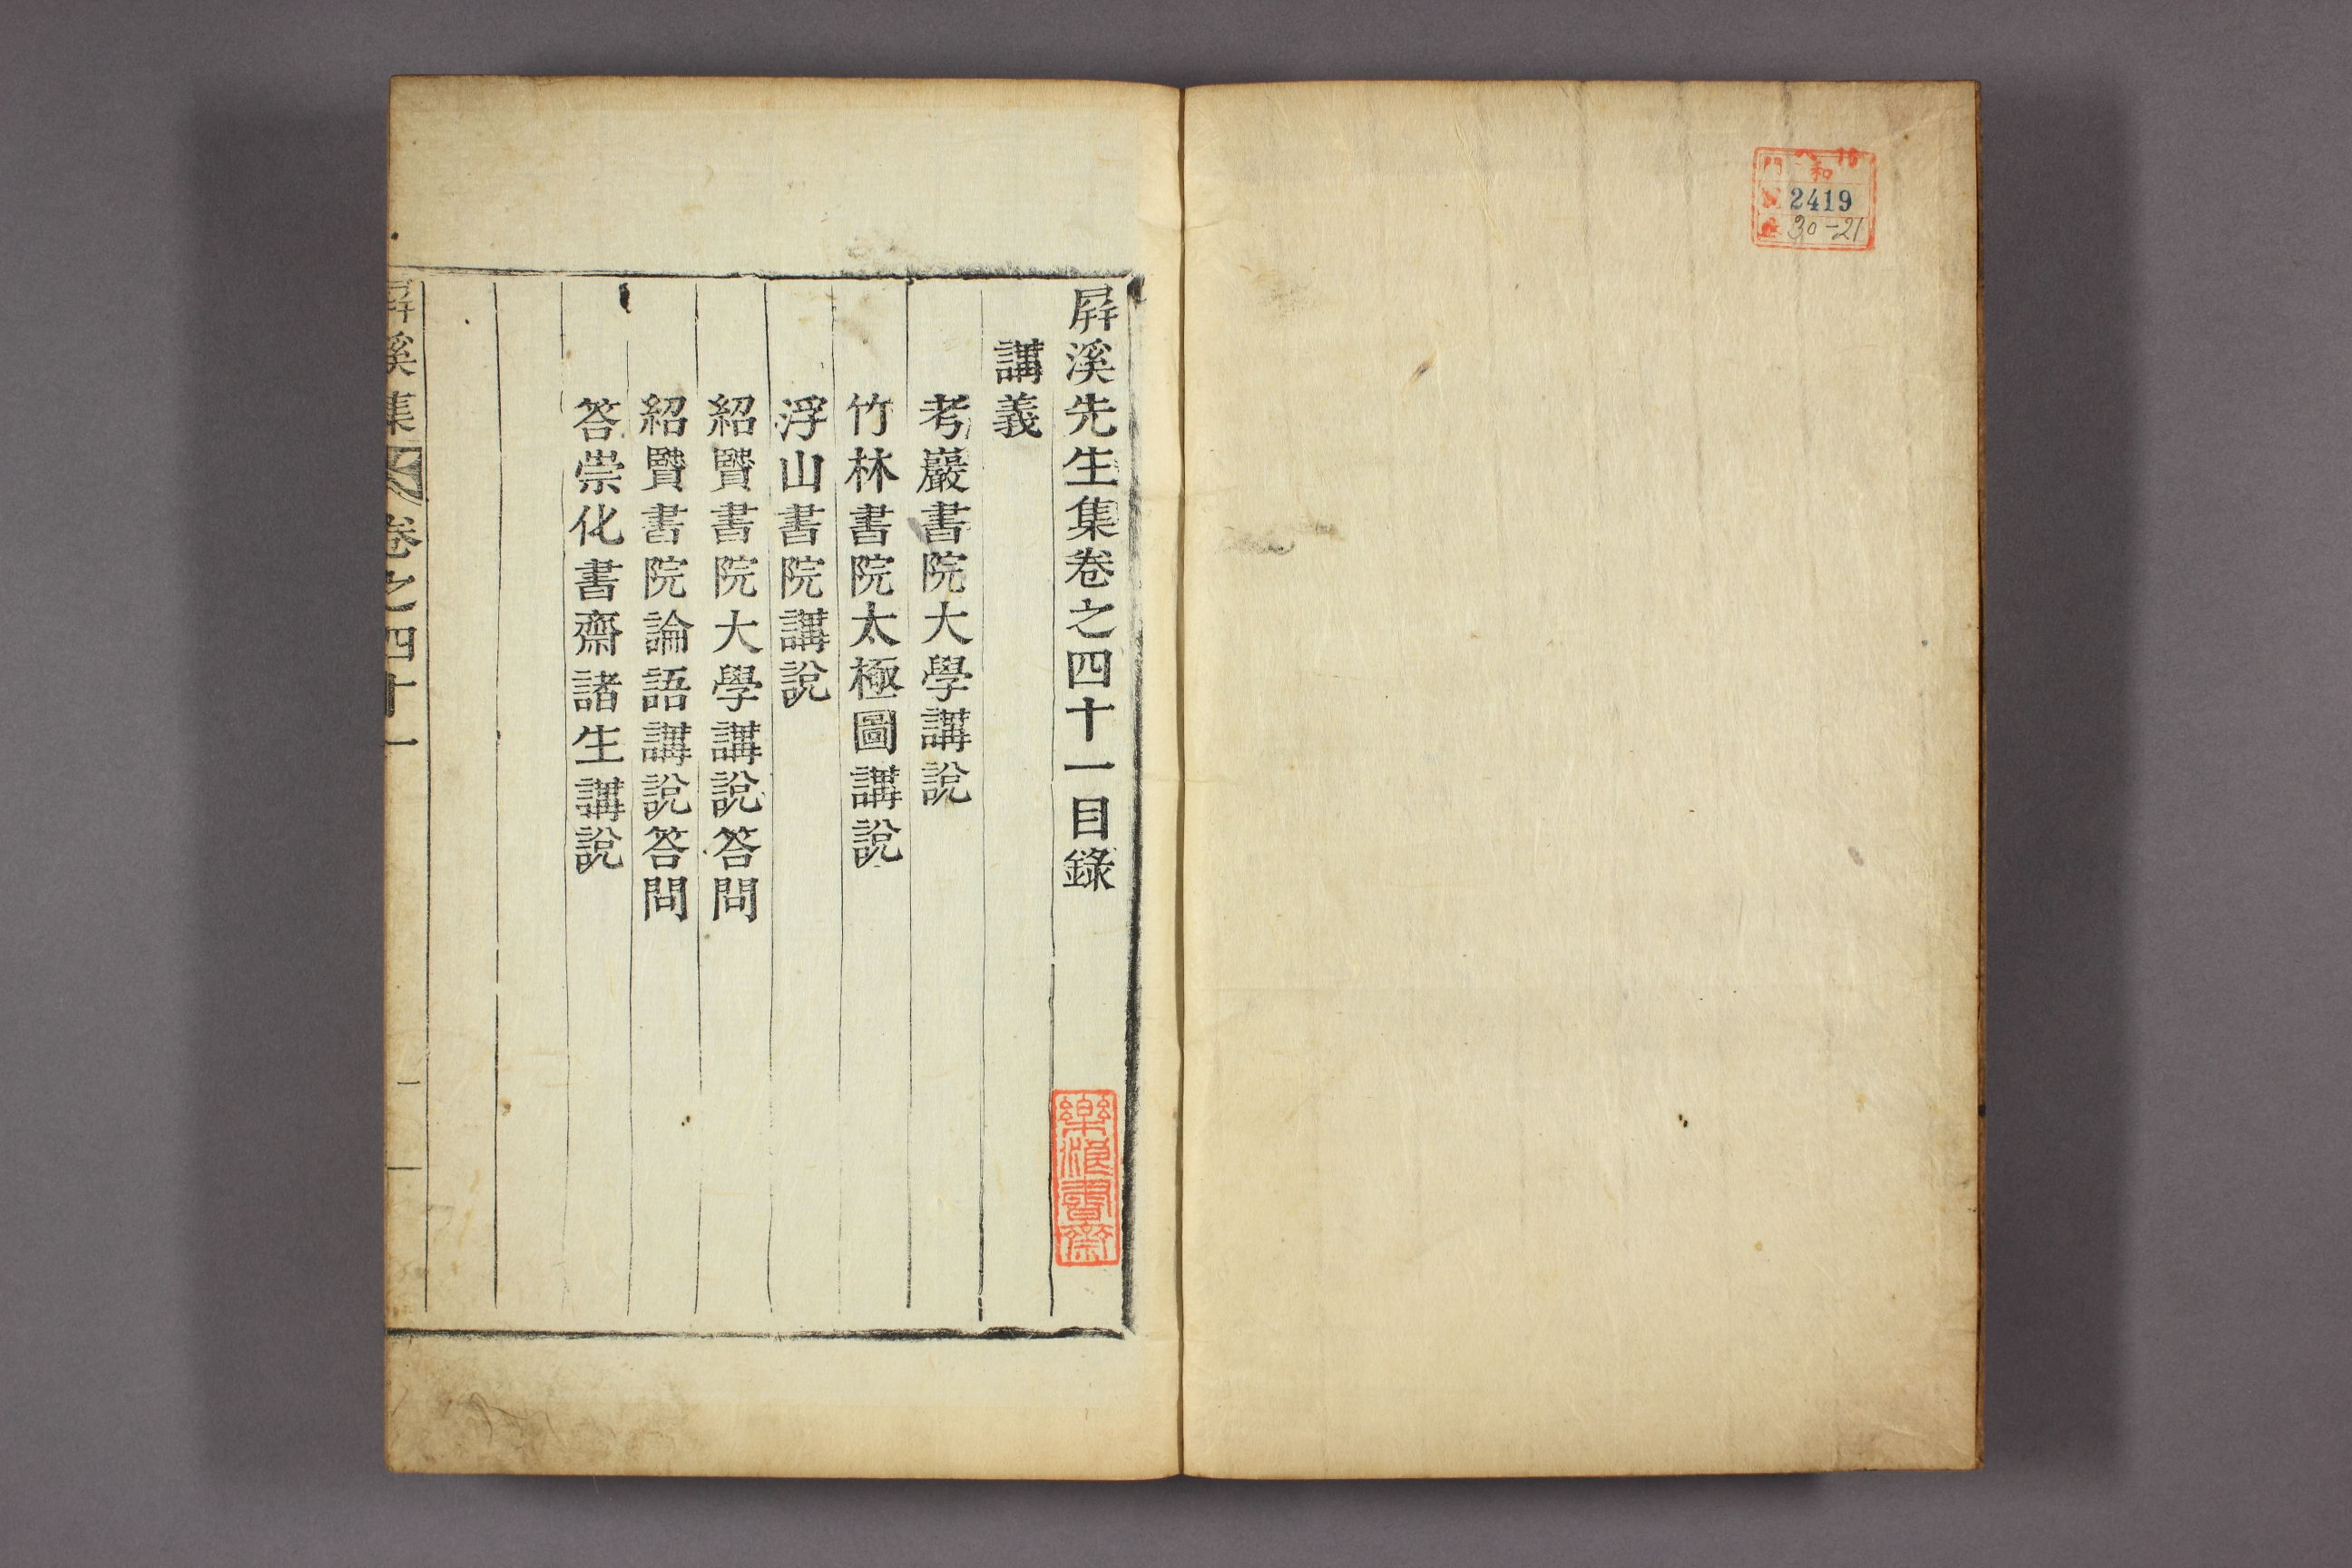 和
門
2419
30-21
屛溪先生集卷之四十一目錄
講義
考巖書院大學講說
竹林書院太極圖講說
浮山書院講說
紹賢書院大學講說答問
紹賢書院論語講說答問
答崇化書齋諸生講說
屛溪集
卷之四十一
一